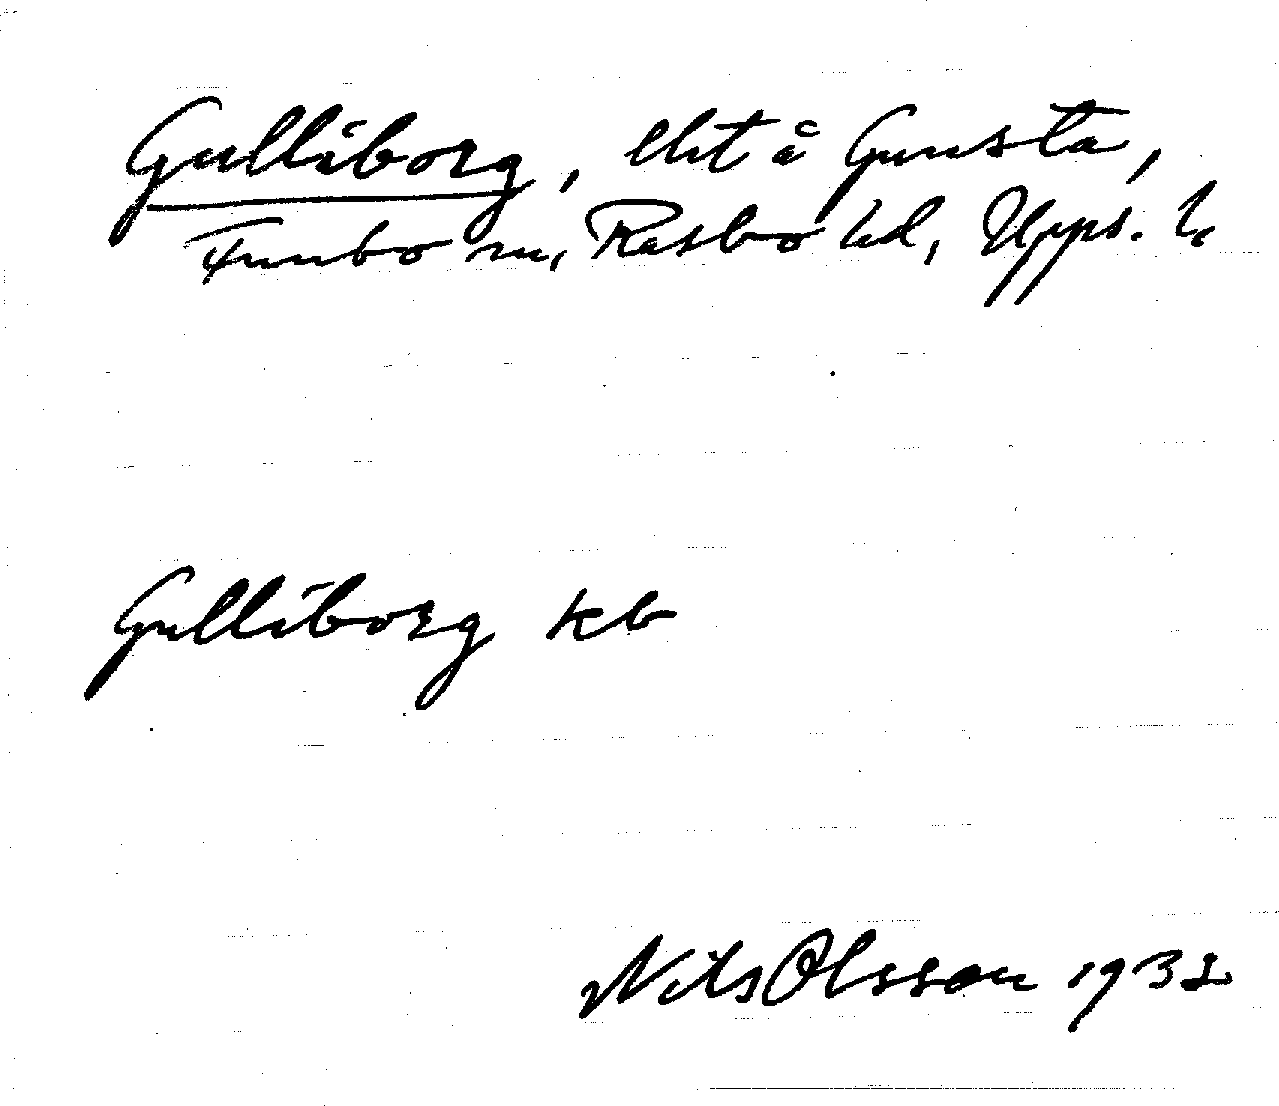 Gulliborg, lht å Gunsta,
Funbo sn, Rasbo hd, Upps. l.
Gulliborg kb
Nils Olsson 1932